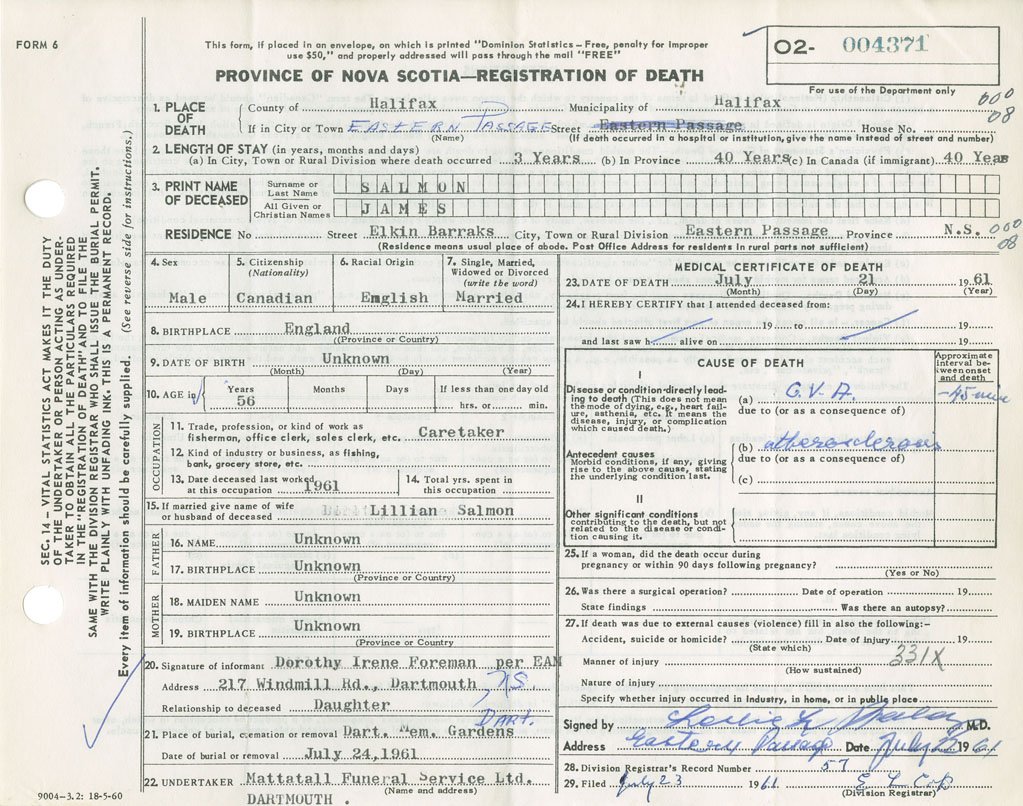 FORM 6
This form, if placed in an envelope, on which is printed "Dominion Statistics – Free, penalty for improper
use $50," and properly addressed will pass through the mail "FREE"
PROVINCE OF NOVA SCOTIA—REGISTRATION OF DEATH
O2- 004371
For use of the Department only
000
08
1. PLACE OF DEATH
County of Halifax Municipality of Halifax
If in City or Town EASTERN PASSAGE Street Eastern Passage House No.
(Name) (If death occurred in a hospital or institution, give the name instead of street and number)
2. LENGTH OF STAY (in years, months and days)
(a) In City, Town or Rural Division where death occurred 3 Years (b) In Province 40 Years (c) In Canada (if immigrant) 40 Years
3. PRINT NAME OF DECEASED
Surname or Last Name SALMON
All Given or Christian Names JAMES
RESIDENCE No Street Elkin Barraks City, Town or Rural Division Eastern Passage Province N.S. 000
08
(Residence means usual place of abode. Post Office Address for residents in rural parts not sufficient)
4. Sex
Male
5. Citizenship
(Nationality)
Canadian
6. Racial Origin
English
7. Single, Married,
Widowed or Divorced
(write the word)
Married
8. BIRTHPLACE England
(Province or Country)
9. DATE OF BIRTH Unknown
(Month) (Day) (Year)
10. AGE in Years Months Days If less than one day old
56 hrs. or min.
OCCUPATION
11. Trade, profession, or kind of work as
fisherman, office clerk, sales clerk, etc. Caretaker
12. Kind of industry or business, as fishing,
bank, grocery store, etc.
13. Date deceased last worked
at this occupation 1961
14. Total yrs. spent in
this occupation
15. If married give name of wife
or husband of deceased Lillian Salmon
FATHER
16. NAME Unknown
17. BIRTHPLACE Unknown
(Province or Country)
MOTHER
18. MAIDEN NAME Unknown
19. BIRTHPLACE Unknown
(Province or Country)
20. Signature of informant Dorothy Irene Foreman per EAM
Address 217 Windmill Rd., Dartmouth, NS.
Relationship to deceased Daughter
Dart.
21. Place of burial, cremation or removal Dart. Mem. Gardens
Date of burial or removal July 24, 1961
22. UNDERTAKER Mattatall Funeral Service Ltd.
(Name and address)
DARTMOUTH .
9004-3.2: 18-5-60
MEDICAL CERTIFICATE OF DEATH
23. DATE OF DEATH July 21 19 61
(Month) (Day) (Year)
24. I HEREBY CERTIFY that I attended deceased from:
19 to 19
and last saw h alive on 19
CAUSE OF DEATH
Approximate
interval be-
tween onset
and death
I
Disease or condition directly lead-
ing to death (This does not mean
the mode of dying, e.g., heart fail-
ure, asthenia, etc. It means the
disease, injury, or complication
which caused death.)
(a) C.V.A. -45 min
due to (or as a consequence of)
Antecedent causes
Morbid conditions, if any, giving
rise to the above cause, stating
the underlying condition last.
(b) atherosclerosis
due to (or as a consequence of)
(c)
II
Other significant conditions
contributing to the death, but not
related to the disease or condi-
tion causing it.
25. If a woman, did the death occur during
pregnancy or within 90 days following pregnancy?
(Yes or No)
26. Was there a surgical operation? Date of operation 19
State findings Was there an autopsy?
27. If death was due to external causes (violence) fill in also the following:-
Accident, suicide or homicide? Date of injury 19
(State which)
331X
Manner of injury
(How sustained)
Nature of injury
Specify whether injury occurred in Industry, in home, or in public place
Signed by M.D.
Address Eastern Passage Date July 1961
28. Division Registrar's Record Number 57
29. Filed July 23 1961
(Division Registrar)
SEC. 14 – VITAL STATISTICS ACT MAKES IT THE DUTY
OF THE UNDERTAKER OR PERSON ACTING AS UNDER-
TAKER TO OBTAIN ALL THE PARTICULARS REQUIRED
IN THE "REGISTRATION OF DEATH" AND TO FILE THE
SAME WITH THE DIVISION REGISTRAR WHO SHALL ISSUE THE BURIAL PERMIT.
WRITE PLAINLY WITH UNFADING INK. THIS IS A PERMANENT RECORD.
Every item of information should be carefully supplied. (See reverse side for instructions.)